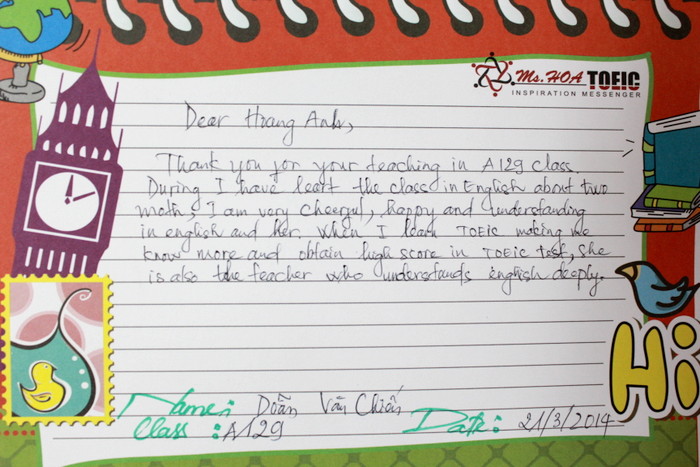 Ms. HOA TOEIC
INSPIRATION MESSENGER
Dear Hoang Anh,
Thank you for your teaching in A129 class.
During I have leart the class in English about two
moths, I am very cheerful, happy and understanding
in english and her. When I learn TOEIC making me
know more and obtain high score in TOEIC test, She
is also the teacher who understands english deeply.
Name: Doãn Văn Chiến
Class: A129
Date: 21/3/2014
Hi